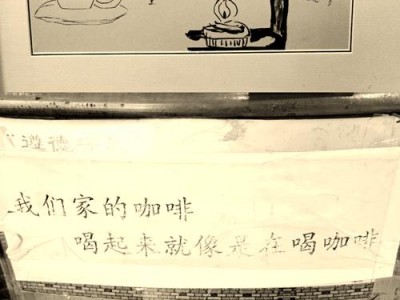 我们家的咖啡
喝起来就像是在喝咖啡